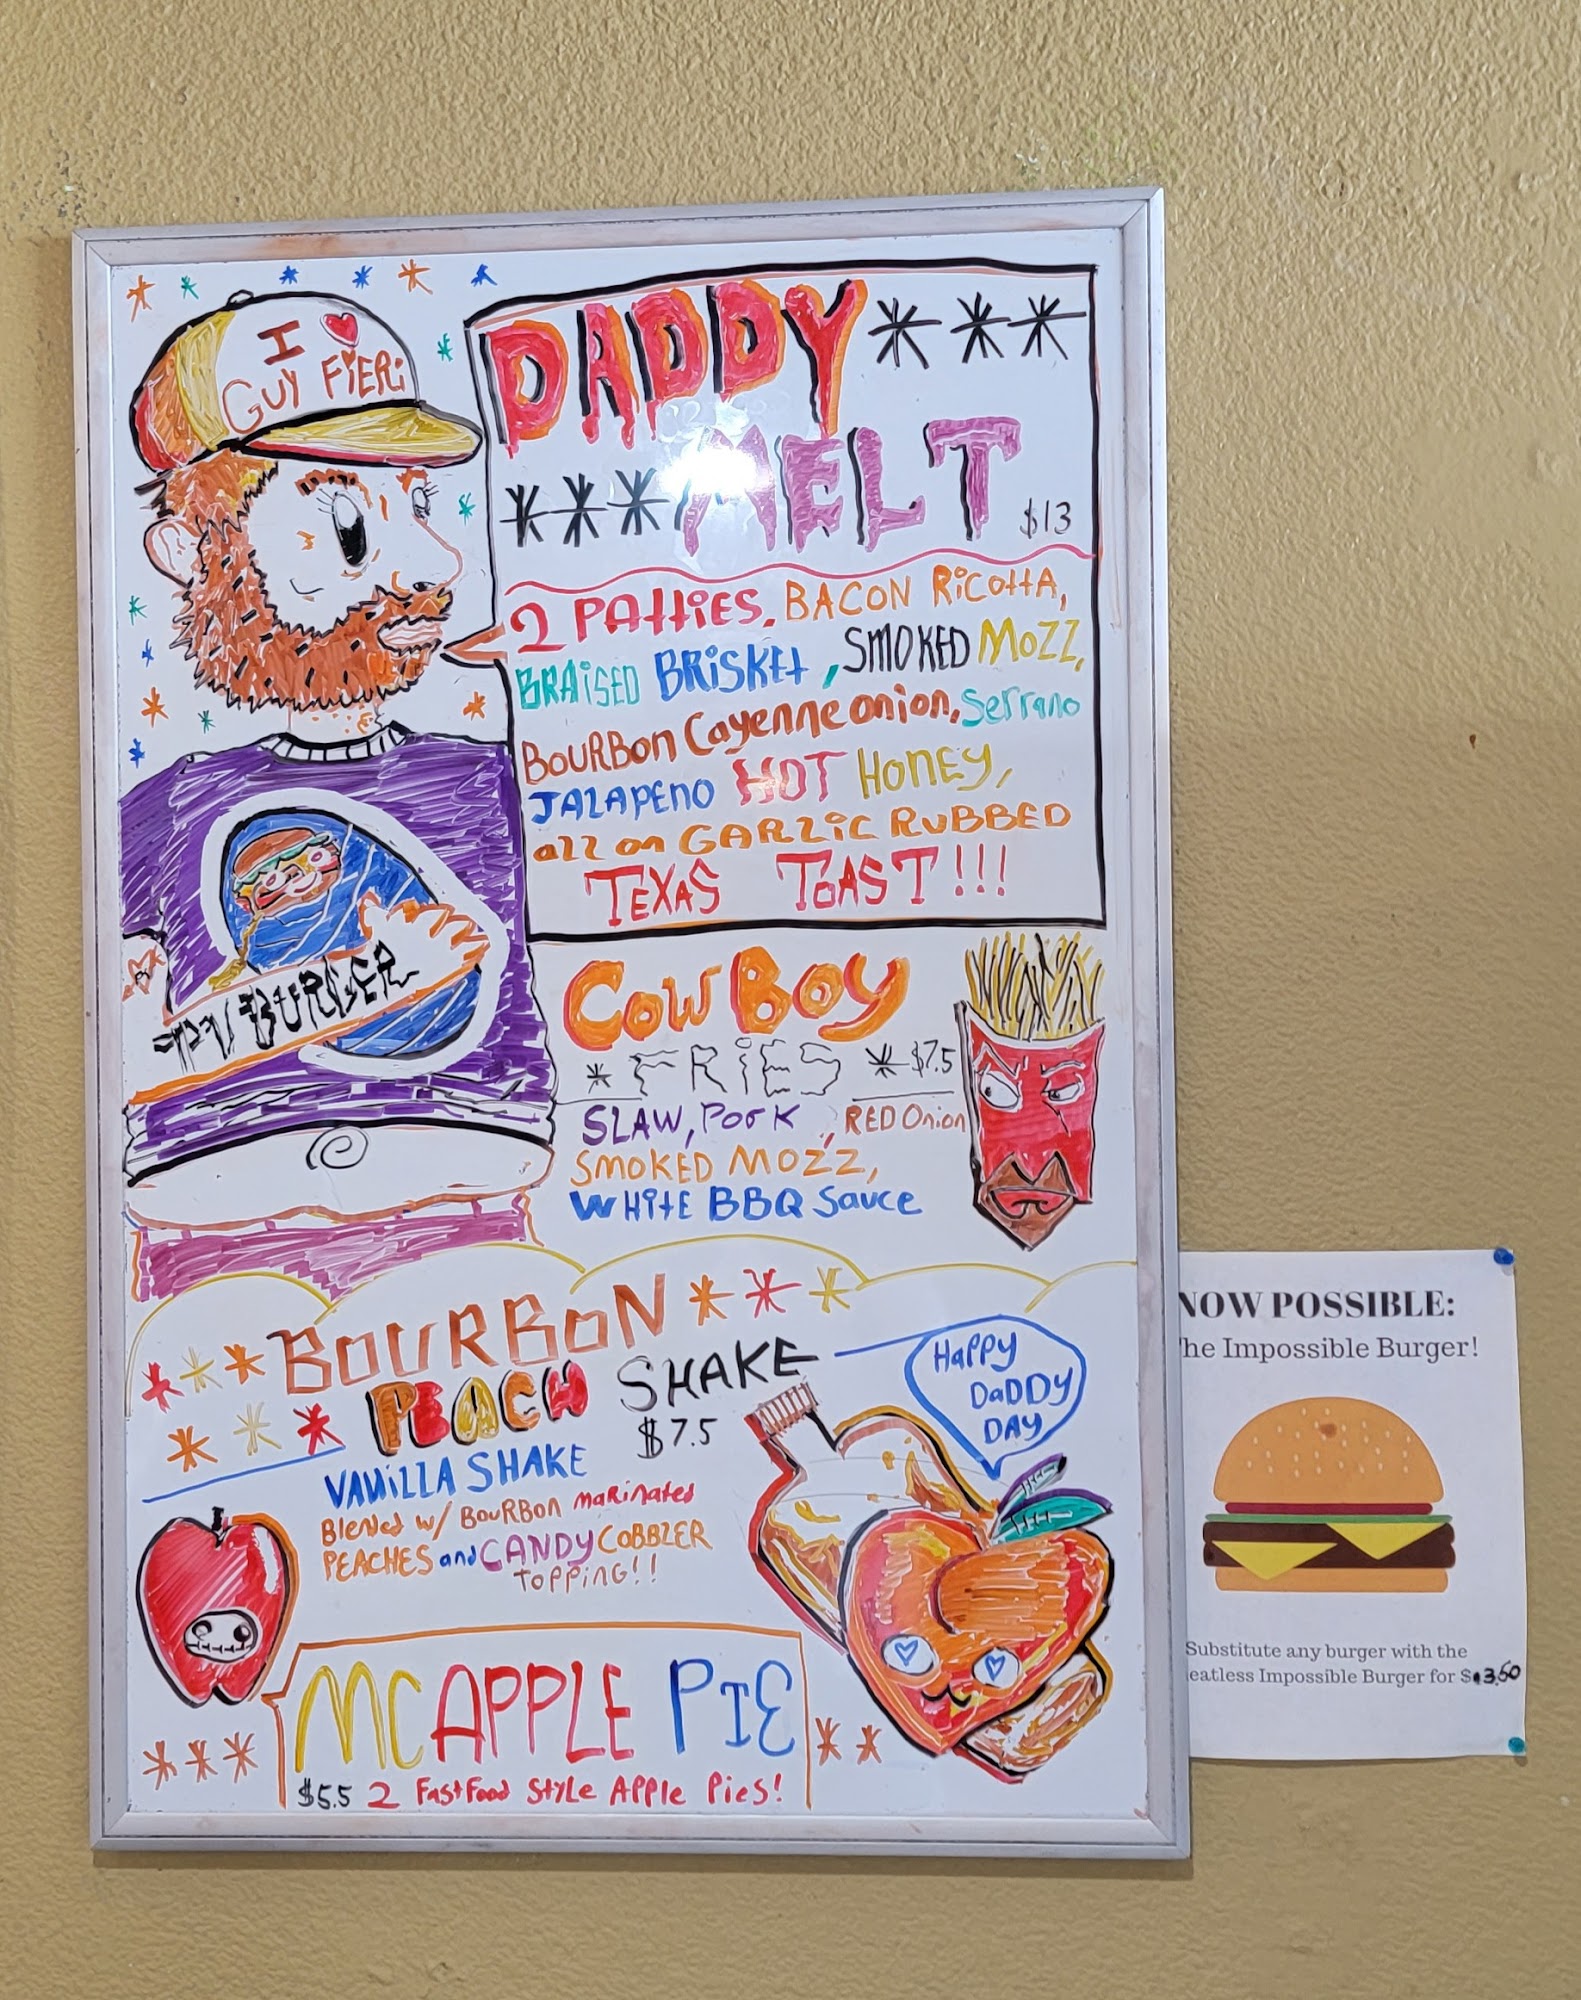 I ♥
GUY FIERi
DADDY
MELT
$13
2 PAttiES, BACON RiCOttA,
BRAiSED BRiSKEt, SMOKED MOZZ,
BOURBon Cayenne onion, Serrano
JALAPEnO HOT HONEY,
aLL on GARLiC RUBBED
TEXAS TOAST!!!
BURGER
COWBOY
FRiES $7.5
SLAW, PORK, RED Onion
SMOKED MOZZ,
WHitE BBQ Sauce
BOURBON
PEACH SHAKE
$7.5
HaPPy
DaDDY
DAY
VANiLLA SHAKE
Blended w/ BouRBon maRinated
PEACHES and CANDY COBBLER
TOPPiNG!!
MCAPPLE PIE
$5.5 2 FastFood StyLe APPle Pies!
NOW POSSIBLE:
he Impossible Burger!
Substitute any burger with the
eatless Impossible Burger for $3.50